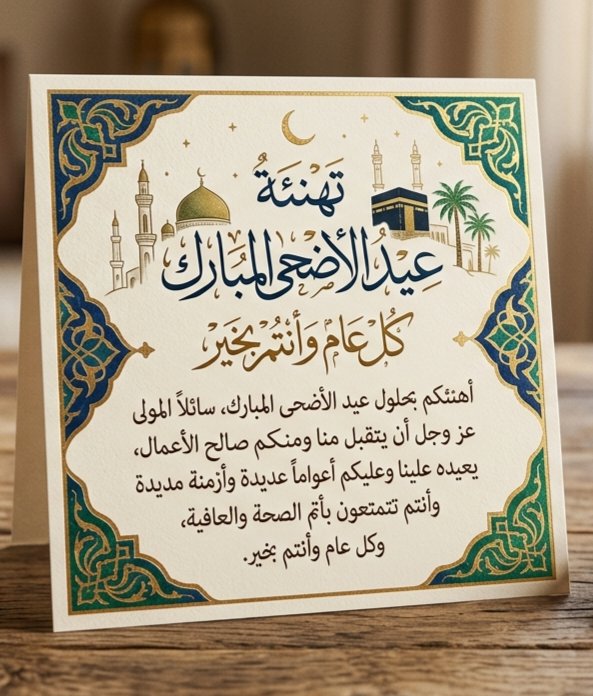 تَهْنَئَةُ
عِيدُ الأَضْحَى المُبَارَك
كُل عَام وَأَنتُم بِخَير
أهنئكم بحلول عيد الأضحى المبارك، سائلاً المولى
عز وجل أن يتقبل منا ومنكم صالح الأعمال،
يعيده علينا وعليكم أعواماً عديدة وأزمنة مديدة
وأنتم تتمتعون بأتم الصحة والعافية،
وكل عام وأنتم بخير.